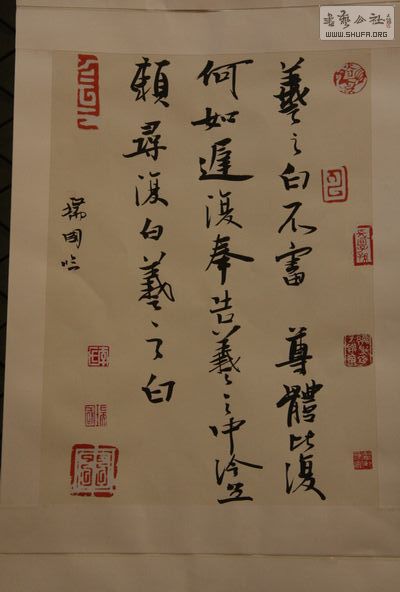 羲之白不審 尊體比復
何如遲復奉告羲之中冷無
賴尋復白羲之白
瑞国临
书艺公社
WWW.SHUFA.ORG